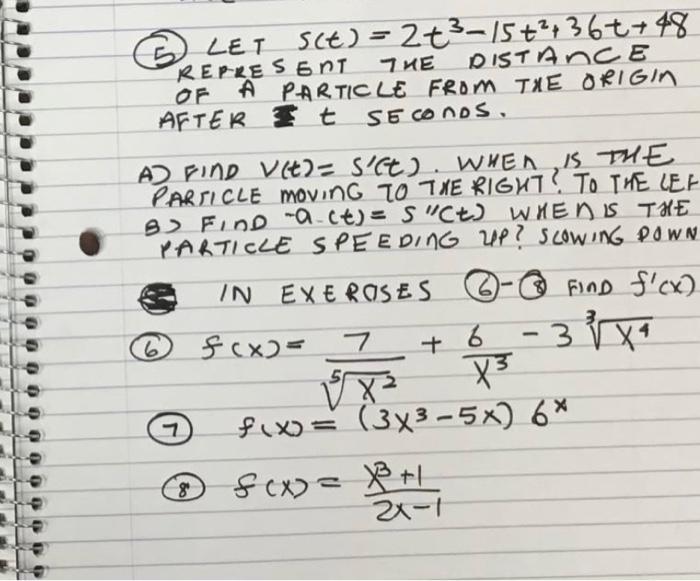 ⑤ LET S(t) = 2t³-15t²+36t+48
REPRESENT THE DISTANCE
OF A PARTICLE FROM THE ORIGIN
AFTER t SECONDS.
A) FIND V(t) = S'(t). WHEN IS THE
PARTICLE MOVING TO THE RIGHT? TO THE LEF
B) FIND a(t) = S''(t) WHEN IS THE
PARTICLE SPEEDING UP? SLOWING DOWN
IN EXERCISES ⑥-⑧ FIND f'(x)
⑥ f(x) = 7/⁵√x² + 6/x³ - 3 ³√x⁴
⑦ f(x) = (3x³-5x) 6ˣ
⑧ f(x) = x³+1/2x-1